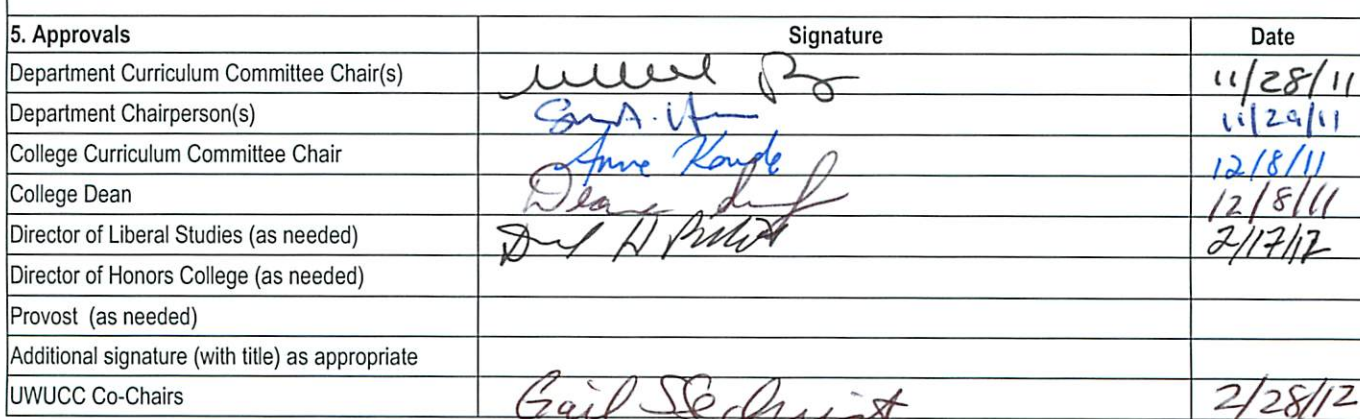 5. Approvals Signature Date
Department Curriculum Committee Chair(s) 11/28/11
Department Chairperson(s) 11/29/11
College Curriculum Committee Chair Anne Kondo 12/8/11
College Dean Deanne 12/8/11
Director of Liberal Studies (as needed) 2/17/12
Director of Honors College (as needed)
Provost (as needed)
Additional signature (with title) as appropriate
UWUCC Co-Chairs Gail Sechrist 2/28/12